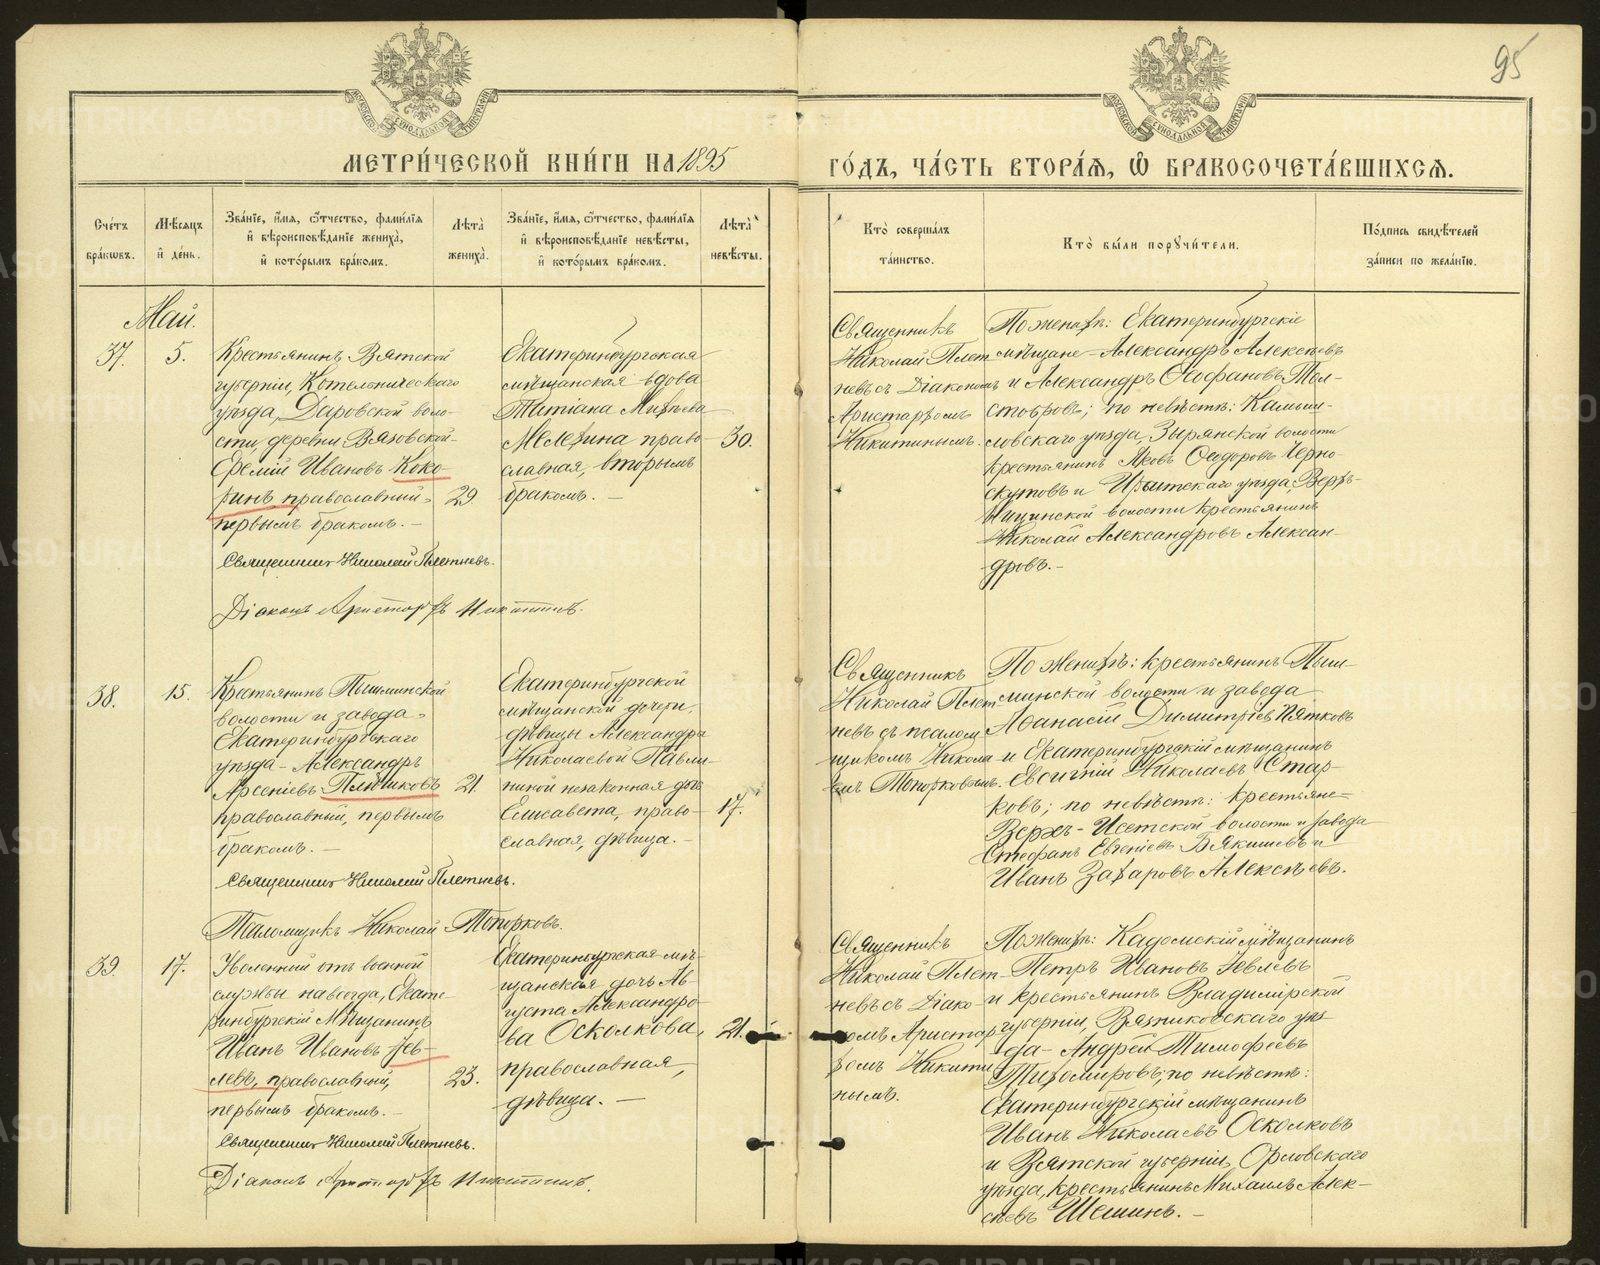 95
МЕТРИ́ЧЕСКОЙ КНИ́ГИ НА 1895
ГО́ДЪ, ЧА́СТЬ ВТОРА́Я, Ѿ БРАКОСОЧЕТА́ВШИХСЯ.
Сче́тъ бра́кωвъ.
Мѣ́сяцъ и҆ де́нь.
Зва́нїе, и҆́мя, ѻ҆́тчество, фами́лїя
и҆ вѣроисповѣ́данїе жениха̀,
и҆ кото́рымъ бра́комъ.
Лѣта̀ жениха̀.
Зва́нїе, и҆́мя, ѻ҆́тчество, фами́лїя
и҆ вѣроисповѣ́данїе невѣ́сты,
и҆ кото́рымъ бра́комъ.
Лѣта̀ невѣ́сты.
Кто̀ соверша́лъ
та́инство.
Кто̀ бы́ли пору́чители.
По́дпись свидѣ́телей
за́писи по жела́нїю.
Май.
37.
5.
Крестьянинъ Вятской
губерніи, Котельническаго
уѣзда, Даровской воло-
сти, деревни Вязовской
Еремій Ивановъ Коко-
ринъ православный,
первымъ бракомъ. –
29
Екатеринбургская
мѣщанская вдова
Татіана Михѣева
Мелехина право-
славная, вторымъ
бракомъ. –
30.
Священникъ
Николай Плет-
невъ съ Діакономъ
Аристархомъ
Никитинымъ.
По женихѣ: Екатеринбургскіе
мѣщане – Александръ Алексѣевъ
и Александръ Ѳеофановъ Тол-
стобровъ; по невѣстѣ: Камыш-
ловскаго уѣзда, Зырянской волости
крестьянинъ Яковъ Ѳеодоровъ Черно-
скутовъ и Ирбитскаго уѣзда, Верх-
Ницинской волости крестьянинъ
Николай Александровъ Алексан-
дровъ. –
Священникъ Николай Плетневъ.
Діаконъ Аристархъ Никитинъ.
38.
15.
Крестьянинъ Пышминской
волости и завода
Екатеринбургскаго
уѣзда – Александръ
Арсеніевъ Плѣшковъ
православный, первымъ
бракомъ. –
21.
Екатеринбургской
мѣщанской дочери,
дѣвицы Александры
Николаевой Павли-
ниной незаконная дочь
Елисавета, право-
славная, дѣвица. –
17.
Священникъ
Николай Плет-
невъ съ псалом-
щикомъ Никола-
емъ Топорковымъ.
По женихѣ: крестьянинъ Пыш-
минской волости и завода
Аѳанасій Димитріевъ Пятковъ
и Екатеринбургскій мѣщанинъ
Евгеній Николаевъ Стар-
ковъ; по невѣстѣ: крестьяне
Верхъ-Исетской волости и завода
Стефанъ Евгеніевъ и
Иванъ Захаровъ Алексѣевъ.
Священникъ Николай Плетневъ.
Псаломщикъ Николай Топорковъ.
39.
17.
Уволенный отъ военной
службы навсегда, Екате-
ринбургскій мѣщанинъ
Иванъ Ивановъ Уев-
левъ, православный,
первымъ бракомъ. –
23.
Екатеринбургская мѣ-
щанская дочь Ав-
густа Александро-
ва Осколкова,
православная,
дѣвица. –
21.
Священникъ
Николай Плет-
невъ съ Діако-
номъ Аристар-
хомъ Никити-
нымъ.
По женихѣ: Кадомскій мѣщанинъ
Петръ Ивановъ Уевлевъ
и крестьянинъ Владимірской
губерніи, Вязниковскаго уѣз-
да – Андрей Тимофеевъ
Тихомировъ; по невѣстѣ:
Екатеринбургскій мѣщанинъ
Иванъ Николаевъ Осколковъ
и Вятской губерніи, Орловскаго
уѣзда, крестьянинъ Михаилъ Алек-
сѣевъ Шешинъ. –
Священникъ Николай Плетневъ.
Діаконъ Аристархъ Никитинъ.